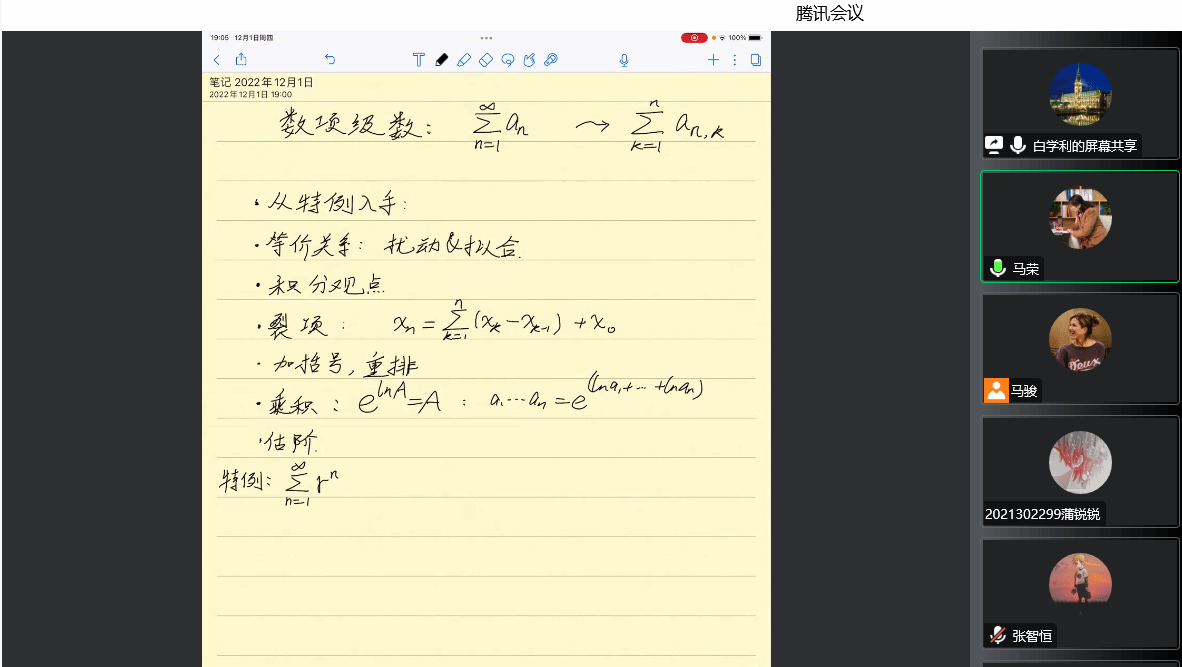 腾讯会议
19:05 12月1日周四
100%
笔记 2022年12月1日
2022年12月1日 19:00
数项级数: ∑_{n=1}^{∞} a_n ⇝ ∑_{k=1}^{n} a_{n,k}
·从特例入手:
·等价关系: 扰动&拟合.
·积分观点
·裂项: x_n = ∑_{k=1}^{n} (x_k - x_{k-1}) + x_0
·加括号, 重排
·乘积: e^{lnA} = A : a_1 ⋯ a_n = e^{(lna_1 + ⋯ + lna_n)}
·估阶.
特例: ∑_{n=1}^{∞} r^n
白学利的屏幕共享
马荣
马骏
2021302299蒲锐锐
张智恒